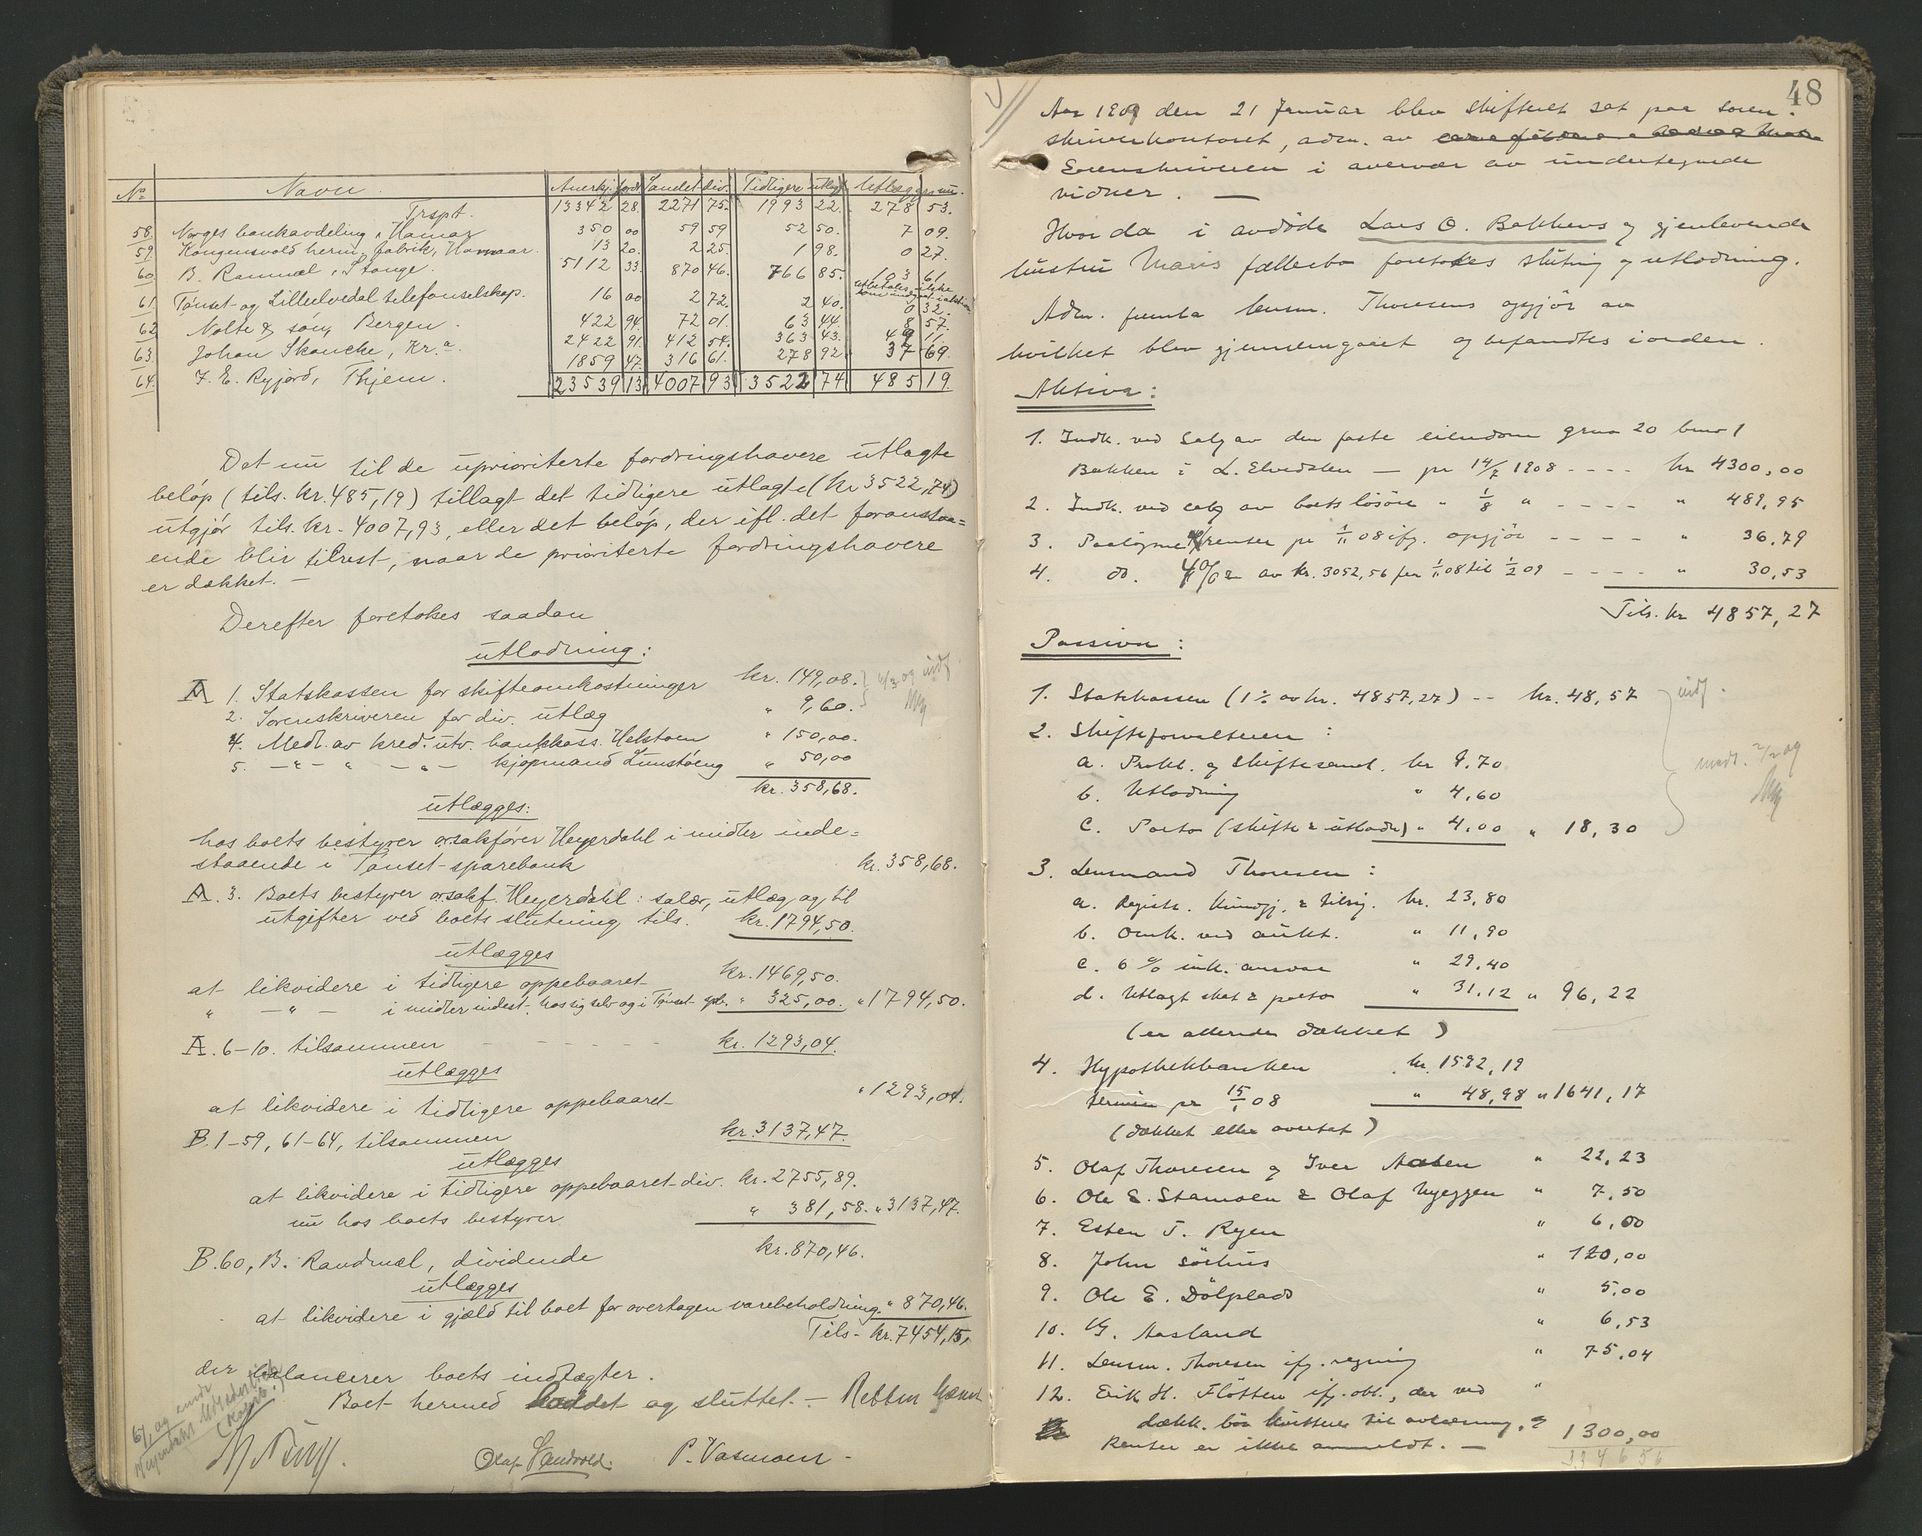 No Navn. Anerkj. ford. Samlet div. Tidligere utlagt Utlægges nu.
Trspt. 13342 28. 2271 75. 1993 22. 278 53.
58. Norges bankavdeling, Hamar 350 00 59 59 52 50. 7 09.
59 Kongensvold herm. fabrik, Hamar. 13 20. 2 25. 1 98. 0 27.
60 B. Ramdul, Stange. 5112 33. 870 46. 766 85. 103 61
utbetales ikke
61 Tønset- og Lilleelvedal telefonselskap. 16 00 2 72. 2 40. 0 32.
62 Nolte & søn, Bergen. 422 94. 72 01. 63 44. 8 57.
63 Johan Skancke, Kr.a 2422 91. 412 54. 363 43. 49 11
64. J. E. Ryjord, Thjem. 1859 47. 316 61. 278 92. 37 69.
23539 13 4007 93 3522 74 485 19
Det nu til de uprioriterte fordringshavere utlagte
beløp (tils. kr. 485,19) tillagt det tidligere utlagte (kr 3522,74)
utgjør tils. kr. 4007,93, eller det beløp, der ifl. det foranstaa=
ende blir tilrest, naar de prioriterte fordringshavere
er dækket. —
Derefter foretokes saadan
utlodning:
A 1. Statskassen for skifteomkostninger kr. 149,08.
2. Sorenskriveren for div. utlæg " 9,60.
4. Medl. av kred. utv. bankkass. Helstoen " 150,00.
5. — " — " — " — kjøpmand Lunstøeng " 50,00
kr. 358,68.
utlægges:
hos boets bestyrer o.r.sakfører Heyerdahl i midler inde=
staaende i Tønset-sparebank kr. 358,68.
A. 3. Boets bestyrer o.r.sakf. Heyerdahl: salær, utlæg, og til
utgifter ved boets slutning tils. kr. 1794,50.
utlægges
at likvidere i tidligere oppebaaret kr. 1469,50.
" — " — i midler indest. hos sig selv og i Tønset- spb. " 325,00. " 1794,50.
A. 6-10. tilsammen - - - - - kr. 1293,04.
utlægges
at likvidere i tidligere oppebaaret " 1293,04.
B. 1-59, 61-64, tilsammen kr. 3137,47.
utlægges
at likvidere i tidligere oppebaaret div. kr. 2755,89.
nu hos boets bestyrer " 381,58. " 3137,47.
B. 60, B. Ramdul, dividende kr. 870,46.
utlægges
at likvidere i gjæld til boet for overtagen varebeholdning. " 870,46.
Tils- kr. 7454,15,
der balancerer boets indtægter.
Boet hermed og sluttet. — Retten hævet
Olaf Sandvold. P. Vasmoen -
48
Aar 1909 den 21 Januar blev skifteret sat paa soren-
skriverkontoret, adm. av
Sorenskriveren i overvær av undertegnede
vidner. —
Hvorda i avdøde Lars O. Bakkens og gjenlevende
hustru Maris fællesbo foretokes slutning og utlodning.
Adm. fremla lensm. Thoresens opgjør av
hvilket blev gjennemgaaet og befandtes i orden.
Aktiva:
1. Indk. ved salg av den faste eiendom gno 20 bno 1
Bakken i L. Elvedalen — pr 14/7 1908 - - - - kr 4300,00
2. Indk. ved salg av boets løsøre " 1/8 " - - - - " 489,95
3. Paaløpne renter pr 1/11 08 ifg. opgjør - - - - " 36,79
4. do. 4 % av kr. 3052,56 fra 1/11 08 til 1/2 09 - - - - " 30,53
Tils. kr 4857,27
Passiva:
1. Statskassen (1% av kr. 4857,27) -- kr. 48,57
2. Skifteforvalteren:
a. Prokl. og skiftesaml. kr 9,70
b. Utlodning " 4,60
c. Porto (skifte & utlodn.) " 4,00 " 18,30
3. Lensmand Thoresen:
a. Registr. kundgj. & tilsig. kr. 23,80
b. Omk. ved aukt. " 11,90
c. 6 % ink. ansvar " 29,40
d. Utlagt skat & porto " 31,12 " 96,22
(er allerede dækket)
4. Hypothekbanken kr. 1592,19
termin pr 15/1 08 " 48,98 " 1641,17
(dækket eller overtat)
5. Olaf Thoresen og Iver Aasen " 22,23
6. Ole E. Stamoen & Olaf Nyeggen " 7,50
7. Esten T. Ryen " 6,00
8. John Sörhus " 120,00
9. Ole E. Dölplads " 5,00
10. G. Aasland " 6,53
11. Lensm. Thoresen ifg. regning " 75,04
12. Erik H. Flötten ifg. obl., der ved "
dækk. bør kvitteres til avlæsning, og
Renter er ikke anmeldt. — 1300,00
3346 56